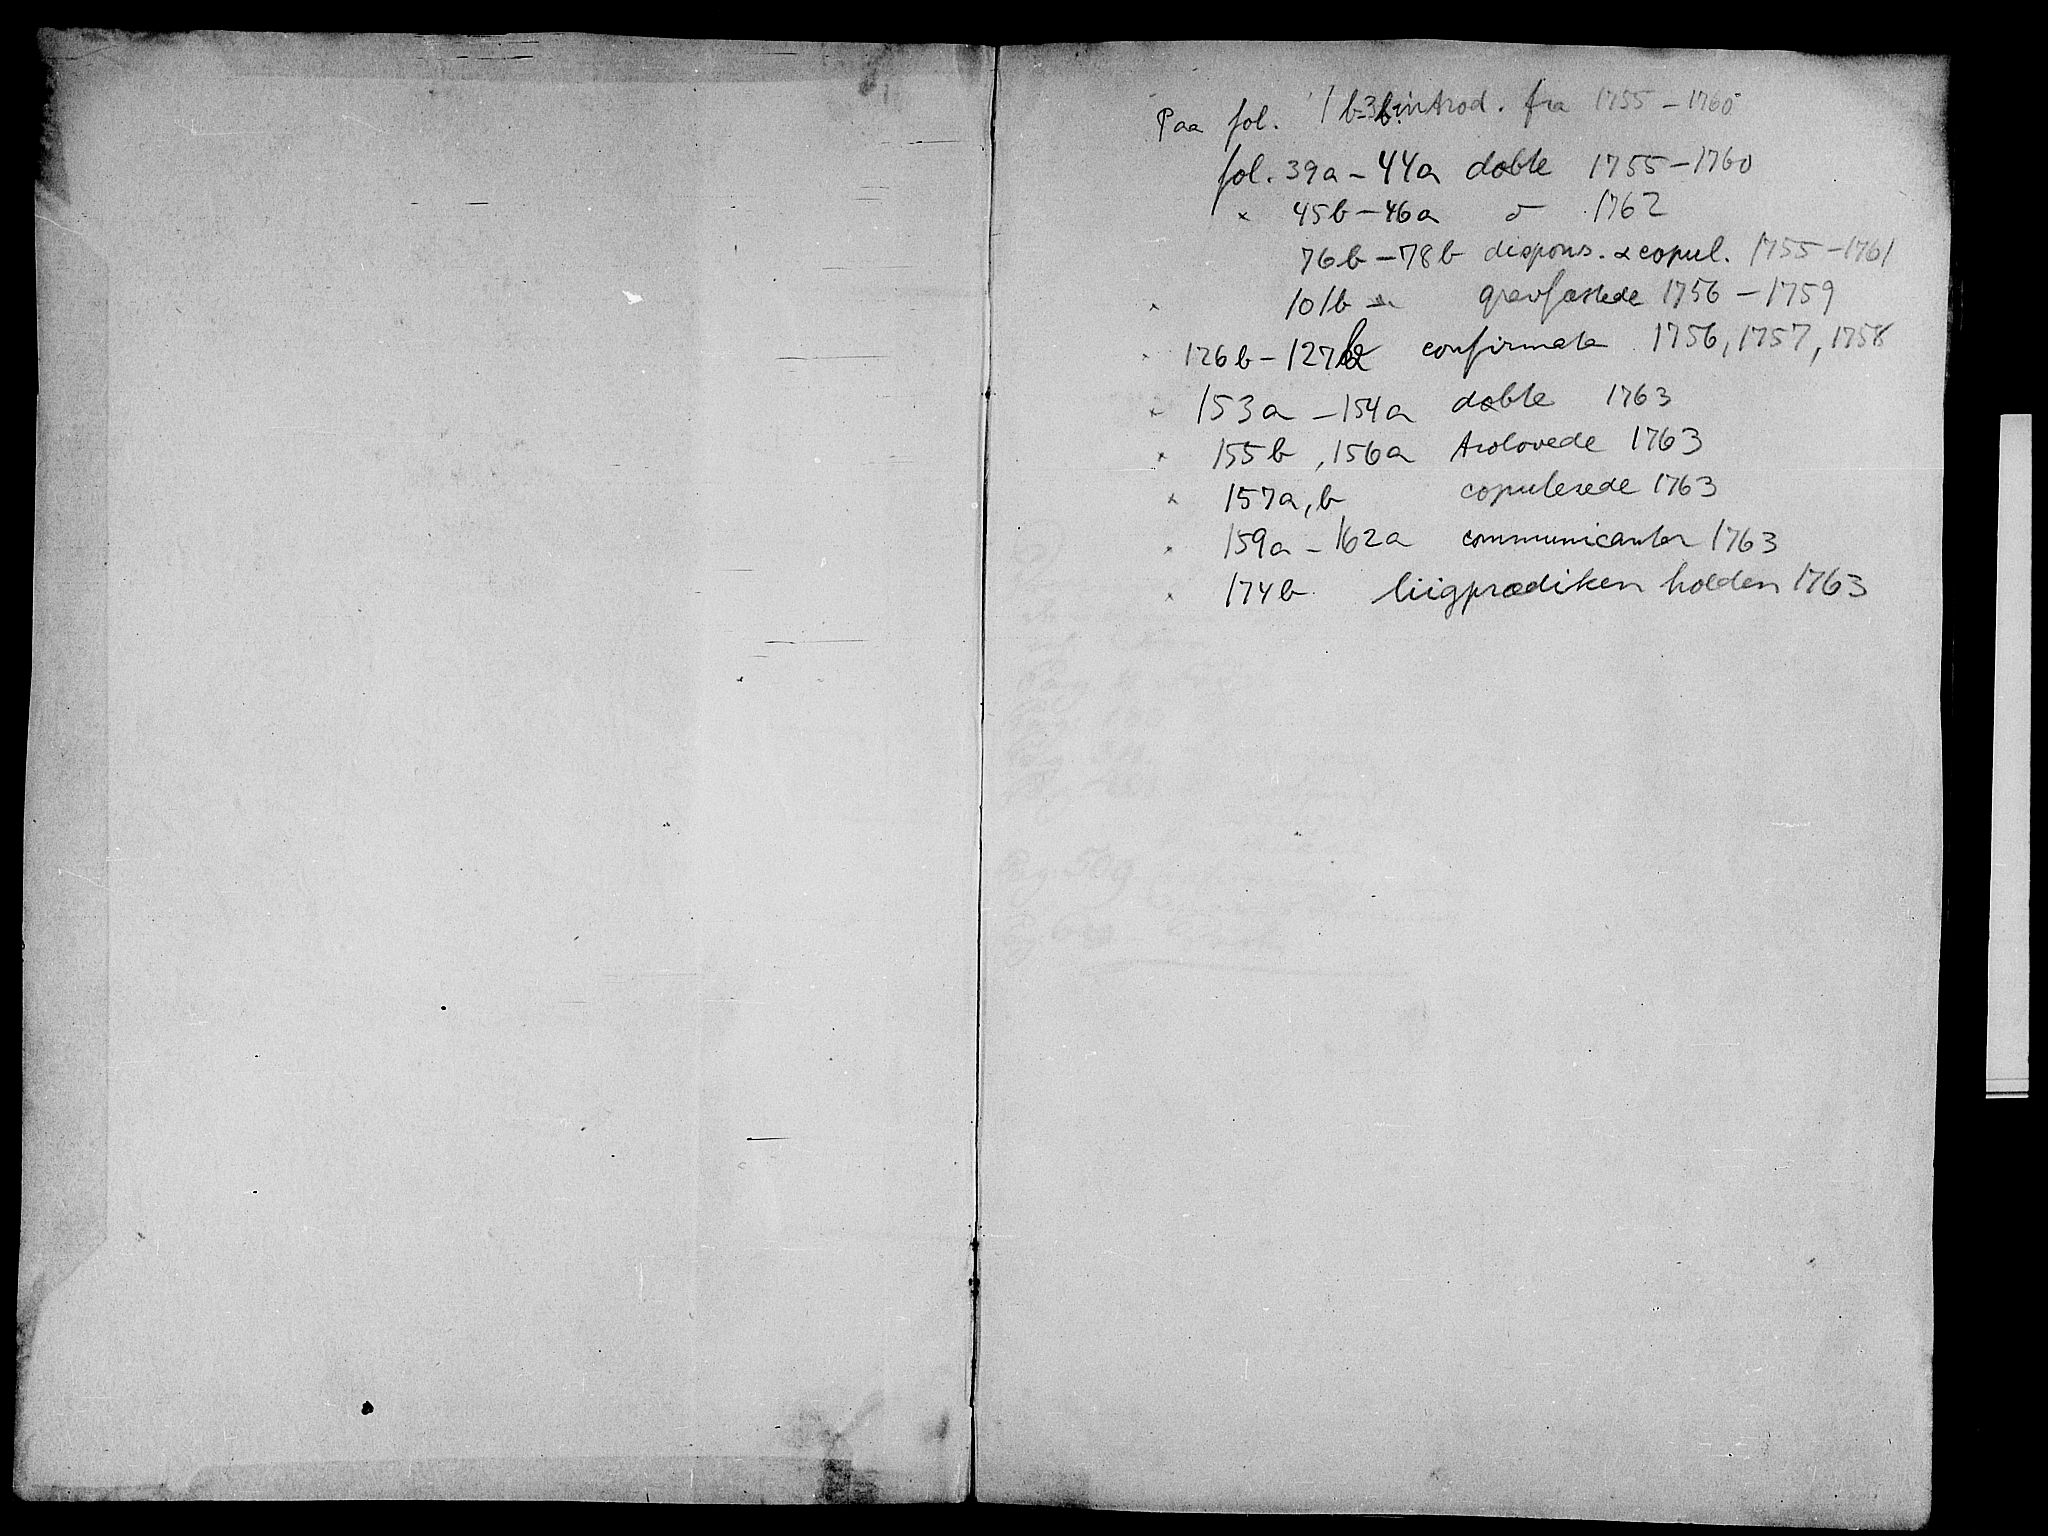 Paa fol. 1b-3b introd. fra 1755-1760
fol. 39a-44a døbte 1755-1760
" 45b-46a o 1762
76b-78b dispons. & copul. 1755-1761
" 101b- gravfæstede 1756-1759
" 126b-127b confirmata 1756, 1757, 1758
" 153a-154a døbte 1763
" 155b, 156a trolovede 1763
" 157a, b copulerede 1763
" 159a-162a communicanter 1763
" 174b liigprædiken holden 1763